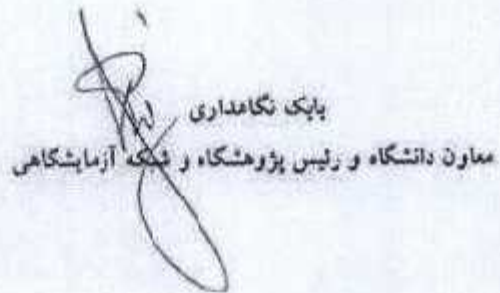 بابک نگاهداری
معاون دانشگاه و رئیس پژوهشگاه و شبکه آزمایشگاهی